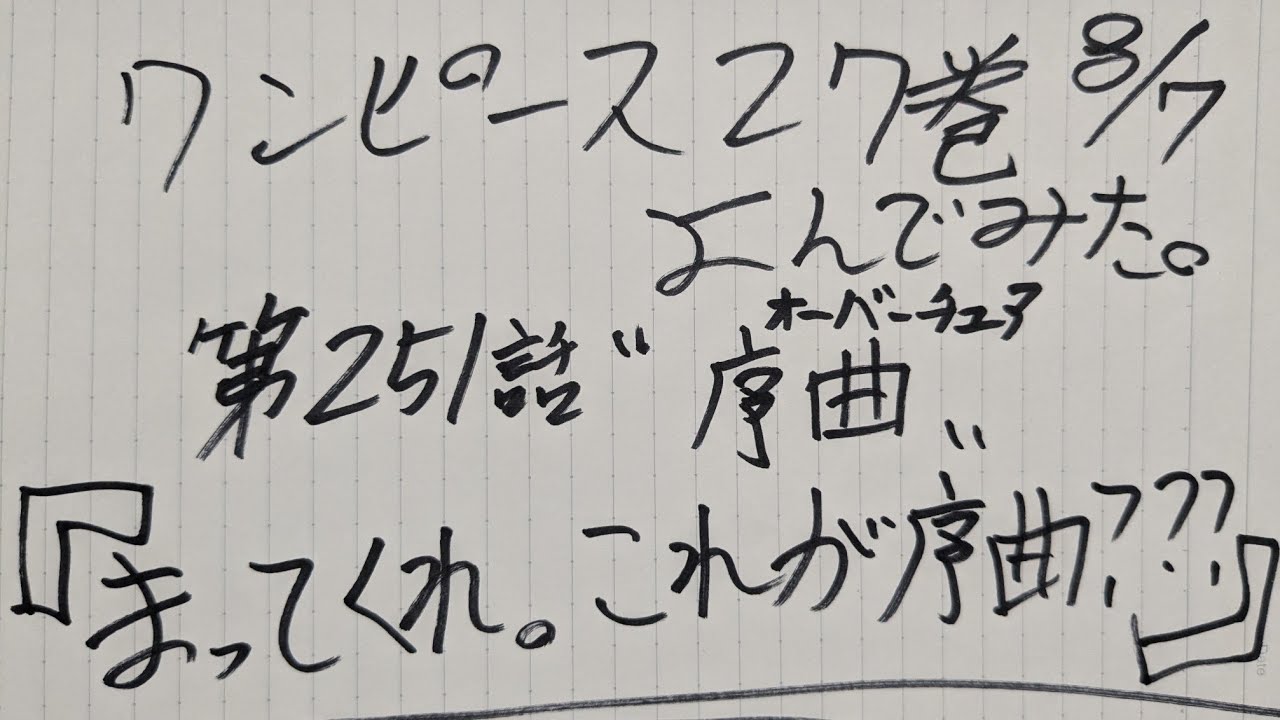 ワンピース27巻 8/7
よんでみた。
オーバーチュア
第251話〝序曲〟
『まってくれ。これが序曲???』